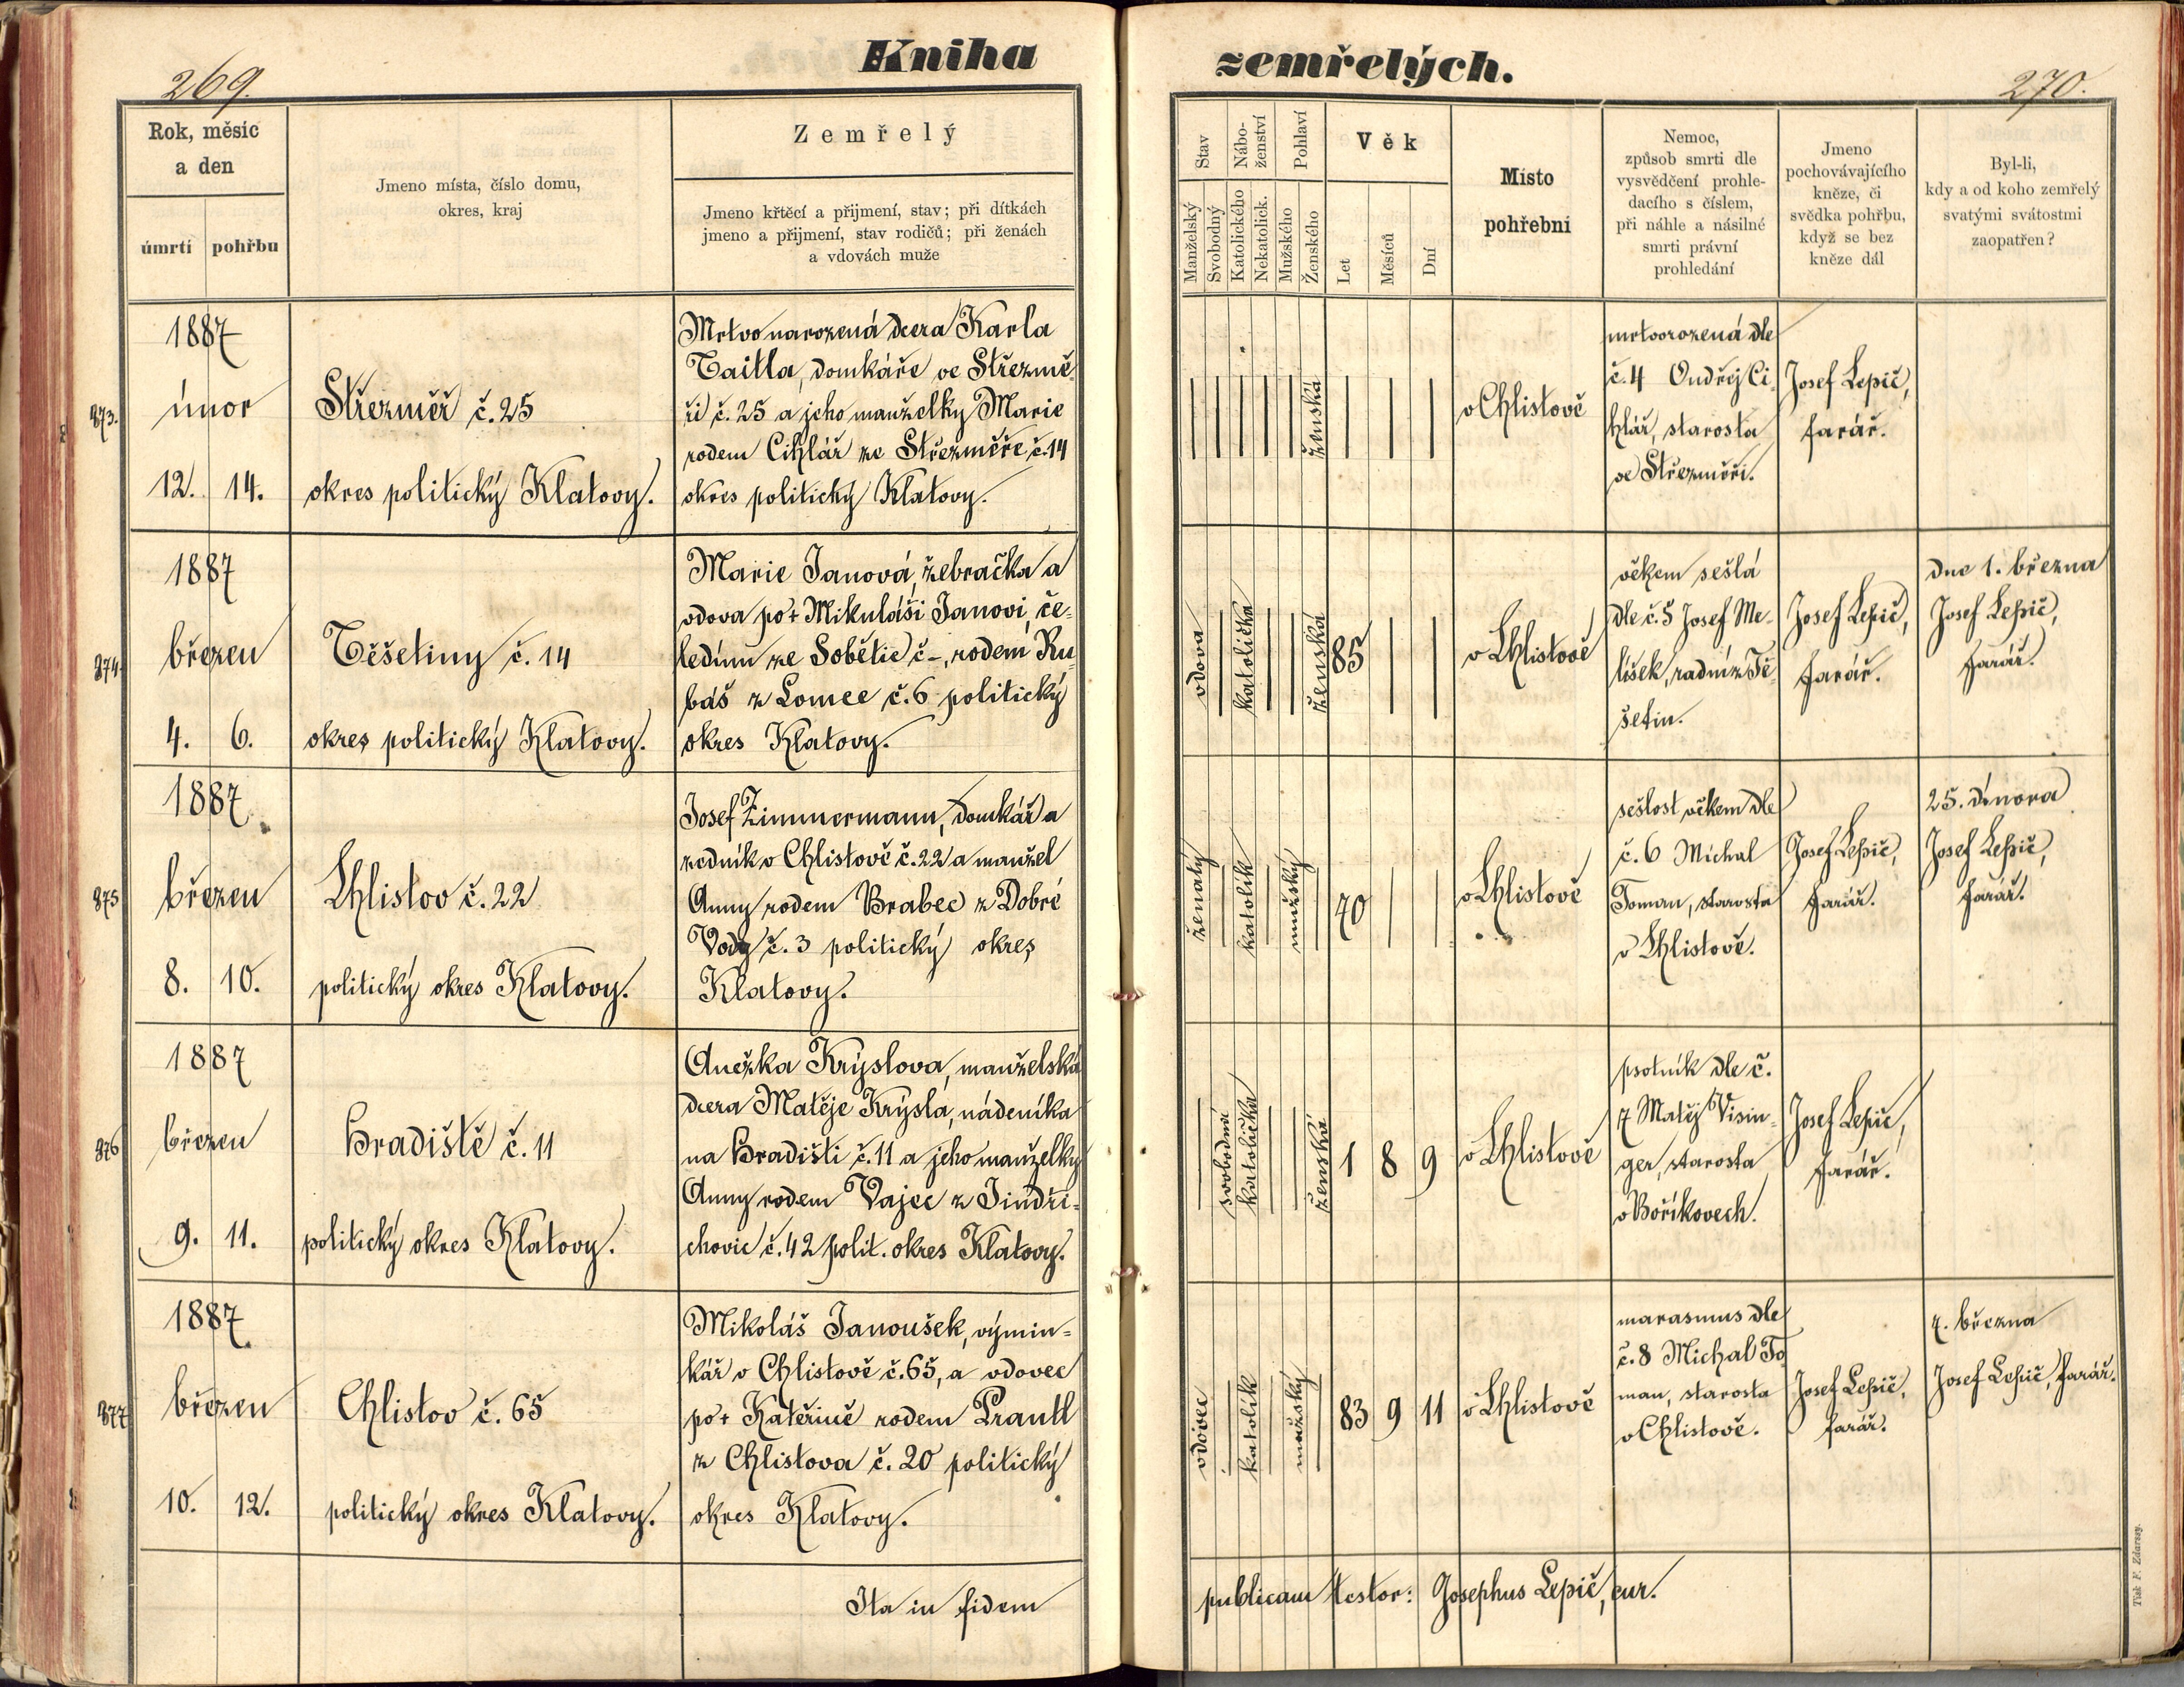 269.
Kniha
Rok, měsíc
a den
úmrtí
pohřbu
Jmeno místa, číslo domu,
okres, kraj
Zemřelý
Jmeno křtěcí a přijmení, stav; při dítkách
jmeno a přijmení, stav rodičů; při ženách
a vdovách muže
873.
1887
únor
12. 14.
Střezměř č. 25
okres politický Klatovy.
Mrtvo narozená dcera Karla
Taitla, domkáře ve Střezmě
ři č. 25 a jeho manželky Marie
rodem Cihlář ze Střezměře č. 14
okres politický Klatovy.
874.
1887
březen
4. 6.
Těšetiny č. 14
okres politický Klatovy.
Marie Janová, žebračka a
vdova po + Mikuláši Janovi, če-
ledínu ze Sobětic č –, rodem Ru
báš z Lomce č. 6 politický
okres Klatovy.
875
1887
březen
8. 10.
Chlistov č. 22
politický okres Klatovy.
Josef Zimmermann, domkář a
zedník v Chlistově č. 22 a manžel
Anny rodem Brabec z Dobré
Vody č. 3 politický okres
Klatovy.
876
1887
březen
9. 11.
Hradiště č. 11
politický okres Klatovy.
Anežka Krýslova, manželská
dcera Matěje Krýsla, nádeníka
na Hradišti č. 11 a jeho manželky
Anny rodem Vajec z Jindři-
chovic č. 42 polit. okres Klatovy.
877
1887
březen
10. 12.
Chlistov č. 65
politický okres Klatovy.
Mikoláš Janoušek, výmin-
kář v Chlistově č. 65, a vdovec
po + Kateřině rodem Prantl
z Chlistova č. 20 politický
okres Klatovy.
Ita in fidem
zemřelých.
270.
Stav
Nábo-
ženství
Pohlaví
Věk
Manželský
Svobodný
Katolického
Nekatolick.
Mužského
Ženského
Let
Měsíců
Dní
Místo
pohřební
Nemoc,
způsob smrti dle
vysvědčení prohle-
dacího s číslem,
při náhle a násilné
smrti právní
prohledání
Jmeno
pochovávajícího
kněze, či
svědka pohřbu,
když se bez
kněze dál
Byl-li,
kdy a od koho zemřelý
svatými svátostmi
zaopatřen?
ženská
v Chlistově
mrtvorozená dle
č. 4 Ondřej Ci-
hlář, starosta
ve Střezměři.
Josef Lepič,
farář.
vdova
katolička
ženská
85
v Chlistově
věkem sešlá
dle č. 5 Josef Me-
lišek, radní z Tě
šetin.
Josef Lepič,
farář.
dne 1. března
Josef Lepič,
farář.
ženatý
katolík
mužský
70
v Chlistově
sešlost věkem dle
č. 6 Michal
Toman, starosta
v Chlistově.
Josef Lepič,
farář.
25. února
Josef Lepič,
farář.
svobodní
katolička
ženská
1 8 9
v Chlistově
psotník dle č.
7 Matěj Visin-
ger, starosta
v Boříkovech.
Josef Lepič,
farář.
vdovec
katolík
mužský
83 9 11
v Chlistově
marasmus dle
č. 8 Michal To
man, starosta
v Chlistově.
Josef Lepič,
farář.
7. března
Josef Lepič, farář.
publicam testor: Josephus Lepič, cur.
Tisk F. Zdarssy.